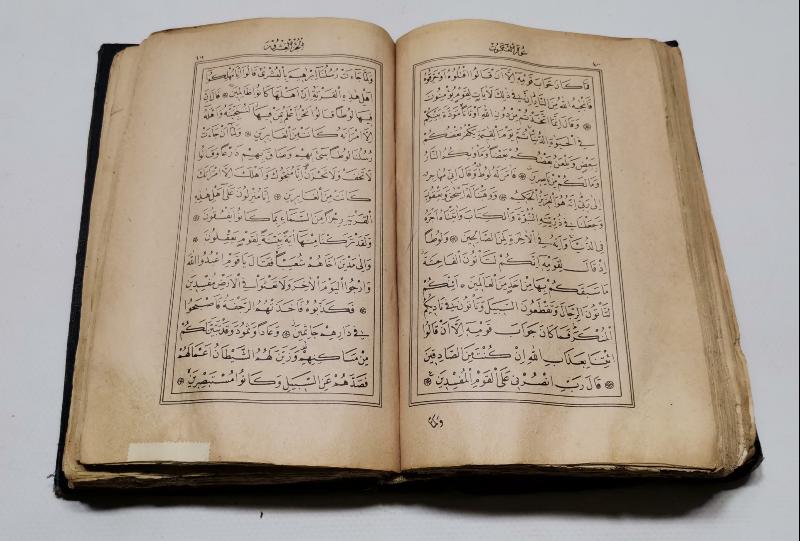 سورة العنكبوت
فَمَا كَانَ جَوَابَ قَوْمِهِ اِلَّا اَنْ قَالُوا اقْتُلُوهُ اَوْ حَرِّقُوهُ
فَاَنْجٰيهُ اللّٰهُ مِنَ النَّارِ اِنَّ فِي ذٰلِكَ لَاٰيَاتٍ لِقَوْمٍ يُؤْمِنُونَ
۞ وَقَالَ اِنَّمَا اتَّخَذْتُمْ مِنْ دُونِ اللّٰهِ اَوْثَانًا مَوَدَّةَ بَيْنِكُمْ
فِي الْحَيٰوةِ الدُّنْيَا ثُمَّ يَوْمَ الْقِيٰمَةِ يَكْفُرُ بَعْضُكُمْ
بِبَعْضٍ وَيَلْعَنُ بَعْضُكُمْ بَعْضًا وَمَاْوٰيكُمُ النَّارُ
وَمَا لَكُمْ مِنْ نَاصِرِينَ ۞ فَاٰمَنَ لَهُ لُوطٌ وَقَالَ اِنِّي مُهَاجِرٌ
اِلٰى رَبِّي اِنَّهُ هُوَ الْعَزِيزُ الْحَكِيمُ ۞ وَوَهَبْنَا لَهُ اِسْحٰقَ وَيَعْقُوبَ
وَجَعَلْنَا فِي ذُرِّيَّتِهِ النُّبُوَّةَ وَالْكِتَابَ وَاٰتَيْنَاهُ اَجْرَهُ
فِي الدُّنْيَا وَاِنَّهُ فِي الْاٰخِرَةِ لَمِنَ الصَّالِحِينَ ۞ وَلُوطًا
اِذْ قَالَ لِقَوْمِهِ اِنَّكُمْ لَتَأْتُونَ الْفَاحِشَةَ
مَا سَبَقَكُمْ بِهَا مِنْ اَحَدٍ مِنَ الْعَالَمِينَ ۞ اَئِنَّكُمْ
لَتَأْتُونَ الرِّجَالَ وَتَقْطَعُونَ السَّبِيلَ وَتَأْتُونَ فِي نَادِيكُمُ
الْمُنْكَرَ فَمَا كَانَ جَوَابَ قَوْمِهِ اِلَّا اَنْ قَالُوا
ائْتِنَا بِعَذَابِ اللّٰهِ اِنْ كُنْتَ مِنَ الصَّادِقِينَ
۞ قَالَ رَبِّ انْصُرْنِي عَلَى الْقَوْمِ الْمُفْسِدِينَ ۞
ولما
وَلَمَّا جَاءَتْ رُسُلُنَا اِبْرٰهِيمَ بِالْبُشْرٰى قَالُوا اِنَّا مُهْلِكُوا
اَهْلِ هٰذِهِ الْقَرْيَةِ اِنَّ اَهْلَهَا كَانُوا ظَالِمِينَ ۞ قَالَ اِنَّ
فِيهَا لُوطًا قَالُوا نَحْنُ اَعْلَمُ بِمَنْ فِيهَا لَنُنَجِّيَنَّهُ وَاَهْلَهُ
اِلَّا امْرَاَتَهُ كَانَتْ مِنَ الْغَابِرِينَ ۞ وَلَمَّا اَنْ جَاءَتْ
رُسُلُنَا لُوطًا سِيءَ بِهِمْ وَضَاقَ بِهِمْ ذَرْعًا وَقَالُوا
لَا تَخَفْ وَلَا تَحْزَنْ اِنَّا مُنَجُّوكَ وَاَهْلَكَ اِلَّا امْرَاَتَكَ
كَانَتْ مِنَ الْغَابِرِينَ ۞ اِنَّا مُنْزِلُونَ عَلٰى اَهْلِ هٰذِهِ
الْقَرْيَةِ رِجْزًا مِنَ السَّمَاءِ بِمَا كَانُوا يَفْسُقُونَ ۞
وَلَقَدْ تَرَكْنَا مِنْهَا اٰيَةً بَيِّنَةً لِقَوْمٍ يَعْقِلُونَ ۞
وَاِلٰى مَدْيَنَ اَخَاهُمْ شُعَيْبًا فَقَالَ يَا قَوْمِ اعْبُدُوا اللّٰهَ
وَارْجُوا الْيَوْمَ الْاٰخِرَ وَلَا تَعْثَوْا فِي الْاَرْضِ مُفْسِدِينَ
۞ فَكَذَّبُوهُ فَاَخَذَتْهُمُ الرَّجْفَةُ فَاَصْبَحُوا
فِي دَارِهِمْ جَاثِمِينَ ۞ وَعَادًا وَثَمُودَ وَقَدْ تَبَيَّنَ لَكُمْ
مِنْ مَسَاكِنِهِمْ وَزَيَّنَ لَهُمُ الشَّيْطَانُ اَعْمَالَهُمْ
فَصَدَّهُمْ عَنِ السَّبِيلِ وَكَانُوا مُسْتَبْصِرِينَ ۞